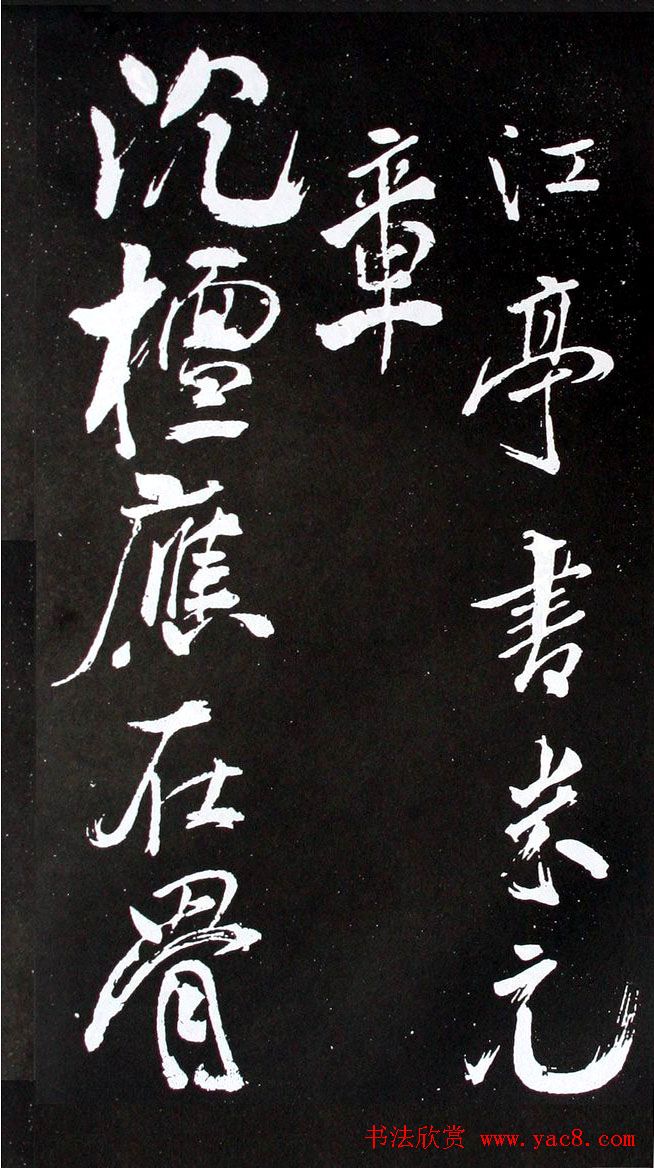 江亭書米元
章
沉檀應在骨
书法欣赏 www.yac8.com